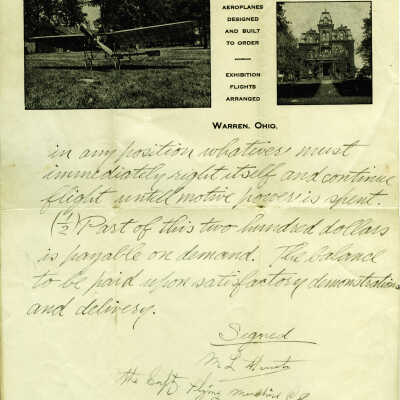 AEROPLANES
DESIGNED
AND BUILT
TO ORDER
EXHIBITION
FLIGHTS
ARRANGED
WARREN, OHIO,
in any position whatever must
immediately right itself and continue
flight until motive power is spent.
(1/2) Part of this two hundred dollars
is payable on demand. The balance
to be paid upon satisfactory demonstration
and delivery.
Signed
M L
the Flying Machine Co